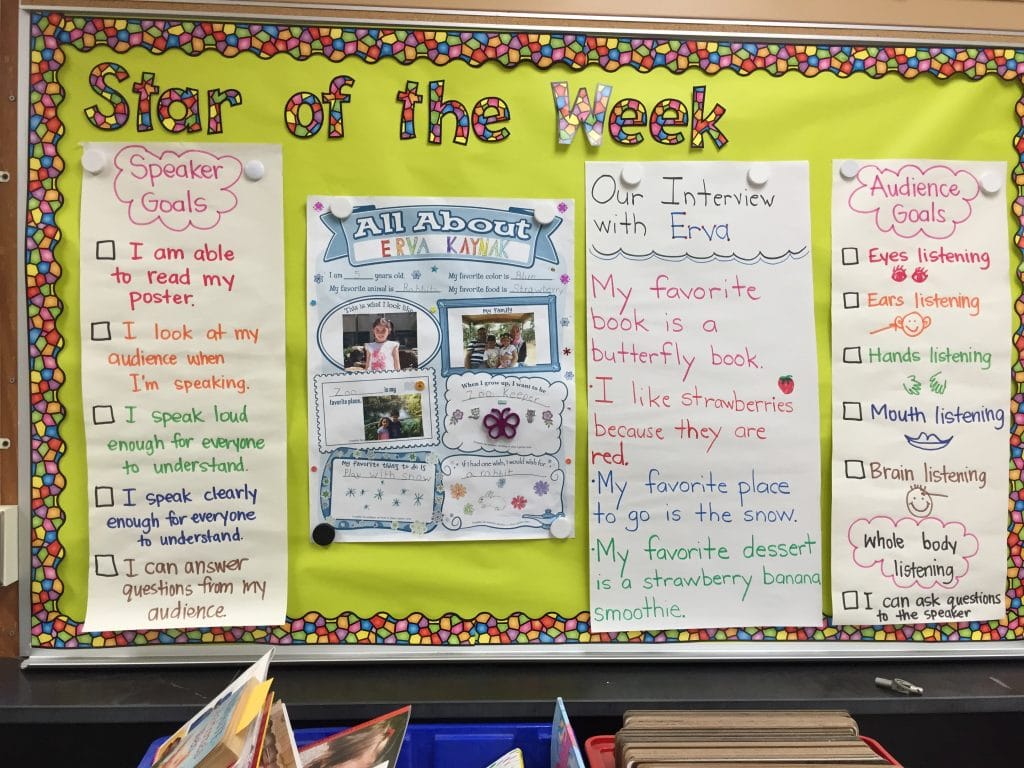 Star of the Week
Speaker
Goals
I am able
to read my
poster.
I look at my
audience when
I'm speaking.
I speak loud
enough for everyone
to understand.
I speak clearly
enough for everyone
to understand.
I can answer
questions from my
audience.
All About
ERVA KAYNAK
I am 5 years old.
My favorite color is Blue
My favorite animal is Rabbit
My favorite food is Strawberry
This is what I look like
my Family
Zoo is my
favorite place.
When I grow up, I want to be
Zoo keeper
My favorite thing to do is
Play with snow
If I had one wish, I would wish for
a rabbit
Our Interview
with Erva
My favorite
book is a
butterfly book.
·I like strawberries
because they are
red.
·My favorite place
to go is the snow.
·My favorite dessert
is a strawberry banana
smoothie.
Audience
Goals
Eyes listening
Ears listening
Hands listening
Mouth listening
Brain listening
Whole body
listening
I can ask questions
to the speaker